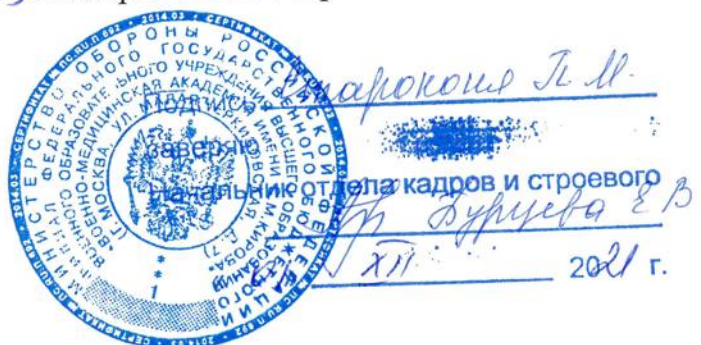 Подпись Старокони П.М.
заверяю
Начальник отдела кадров и строевого
Бурцева Е В
XII 2021 г.
МИНИСТЕРСТВО ОБОРОНЫ РОССИЙСКОЙ ФЕДЕРАЦИИ
ФИЛИАЛ ФЕДЕРАЛЬНОГО ГОСУДАРСТВЕННОГО БЮДЖЕТНОГО
ВОЕННОГО ОБРАЗОВАТЕЛЬНОГО УЧРЕЖДЕНИЯ ВЫСШЕГО ОБРАЗОВАНИЯ
"ВОЕННО-МЕДИЦИНСКАЯ АКАДЕМИЯ ИМЕНИ С.М.КИРОВА"
(Г. МОСКВА, УЛ.
* * 1
2014.03 • СЕРТИФИКАТ № ПС.RU.П 692